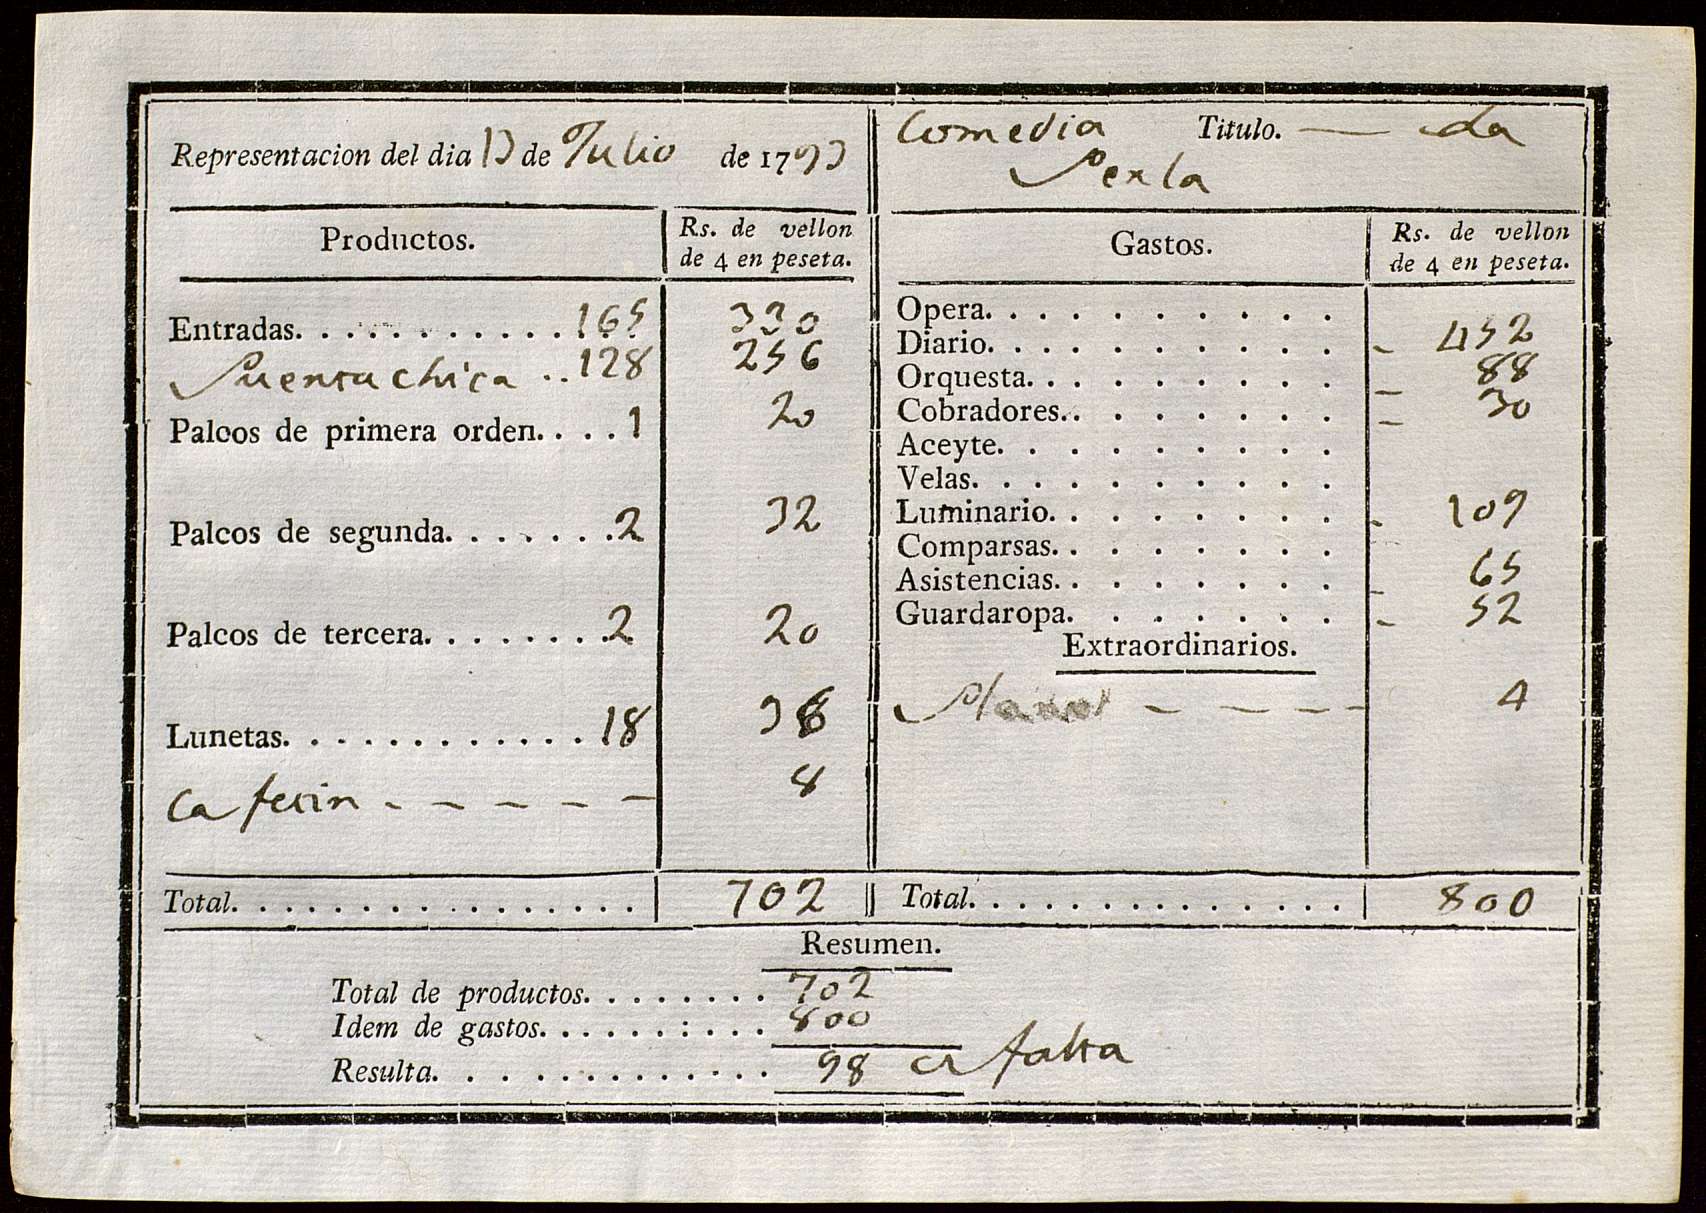 Representacion del dia 13 de Julio de 1793
Comedia Titulo. — La
Perla
Productos.
Rs. de vellon
de 4 en peseta.
Entradas. . . . . . . . . . . 165 330
Puerta chica . . 128 256
Palcos de primera orden. . . . 1 20
Palcos de segunda. . . . . . . 2 32
Palcos de tercera. . . . . . . . 2 20
Lunetas. . . . . . . . . . . . 18 36
Cafetin - - - - - - 8
Total. . . . . . . . . . . . . . . . . 702
Gastos.
Rs. de vellon
de 4 en peseta.
Opera. . . . . . . . . .
Diario. . . . . . . . . . - 452
Orquesta. . . . . . . . . - 88
Cobradores. . . . . . . . - 30
Aceyte. . . . . . . . .
Velas. . . . . . . . . .
Luminario. . . . . . . . - 109
Comparsas. . . . . . . .
Asistencias. . . . . . . . - 65
Guardaropa. . . . . . . - 52
Extraordinarios.
- - - - - 4
Total. . . . . . . . . . . . . . . 800
Resumen.
Total de productos. . . . . . . . 702
Idem de gastos. . . . . . : . . . 800
Resulta. . . . . . . . . . . . . 98 falta